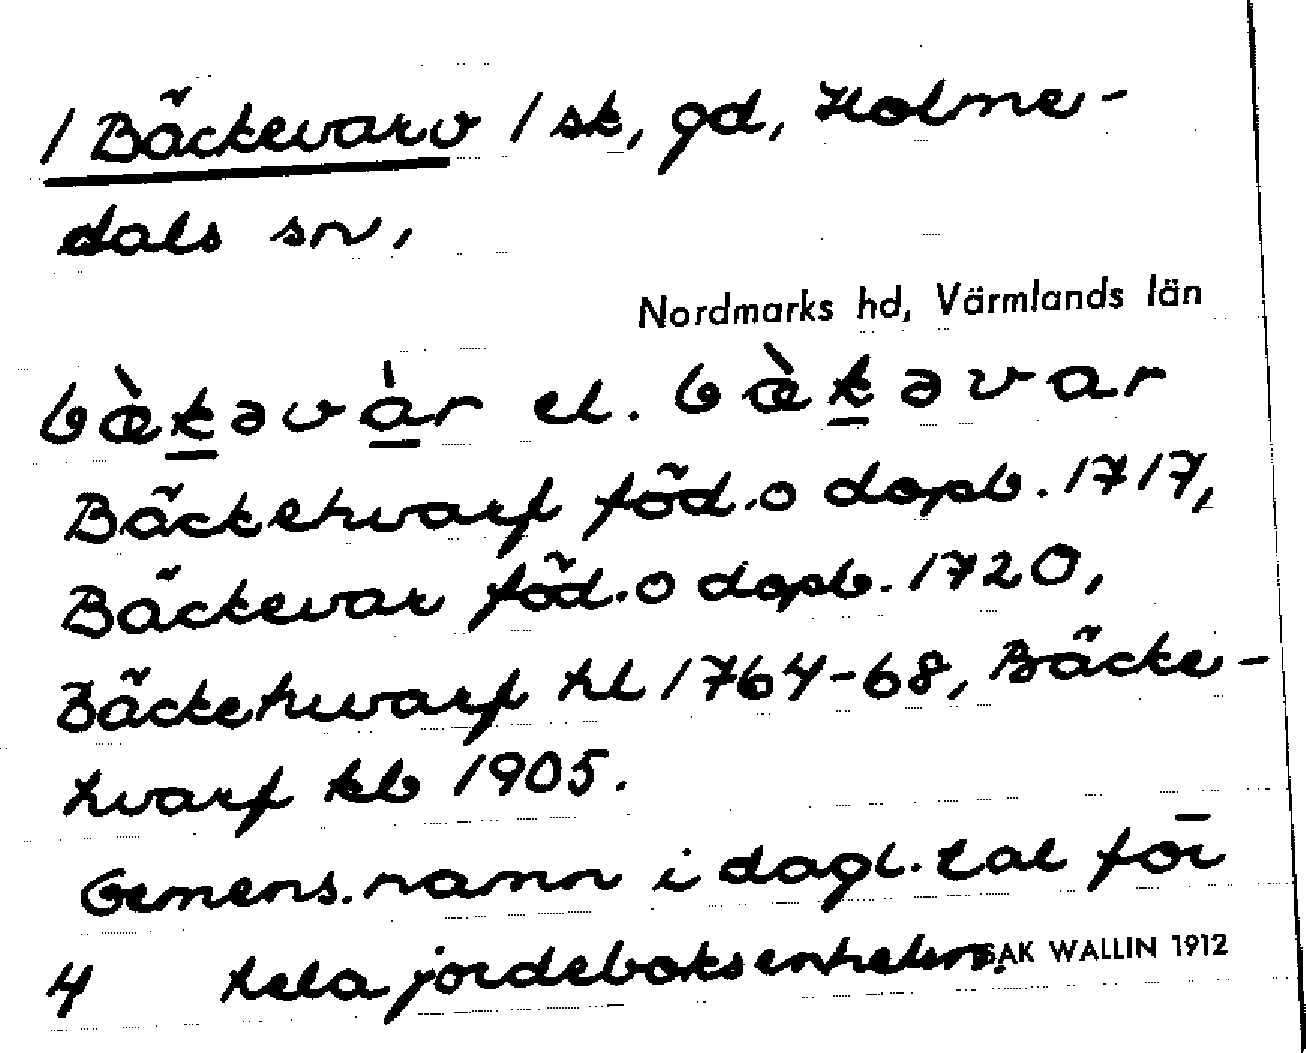 / Bäckevarv / sk, gd, Holme-
dals sn,
Nordmarks hd, Värmlands län
bæ̀k̲əvà̲r el. bæ̀k̲əvar
Bäckehvarf föd.o dopb. 1717,
Bäckevar föd.o dopb. 1720,
Bäckehwarf hl 1764-68, Bäcke-
hvarf kb 1905.
Gemens. namn i dagl. tal för
4 hela jordeboksenheten.
ISAK WALLIN 1912